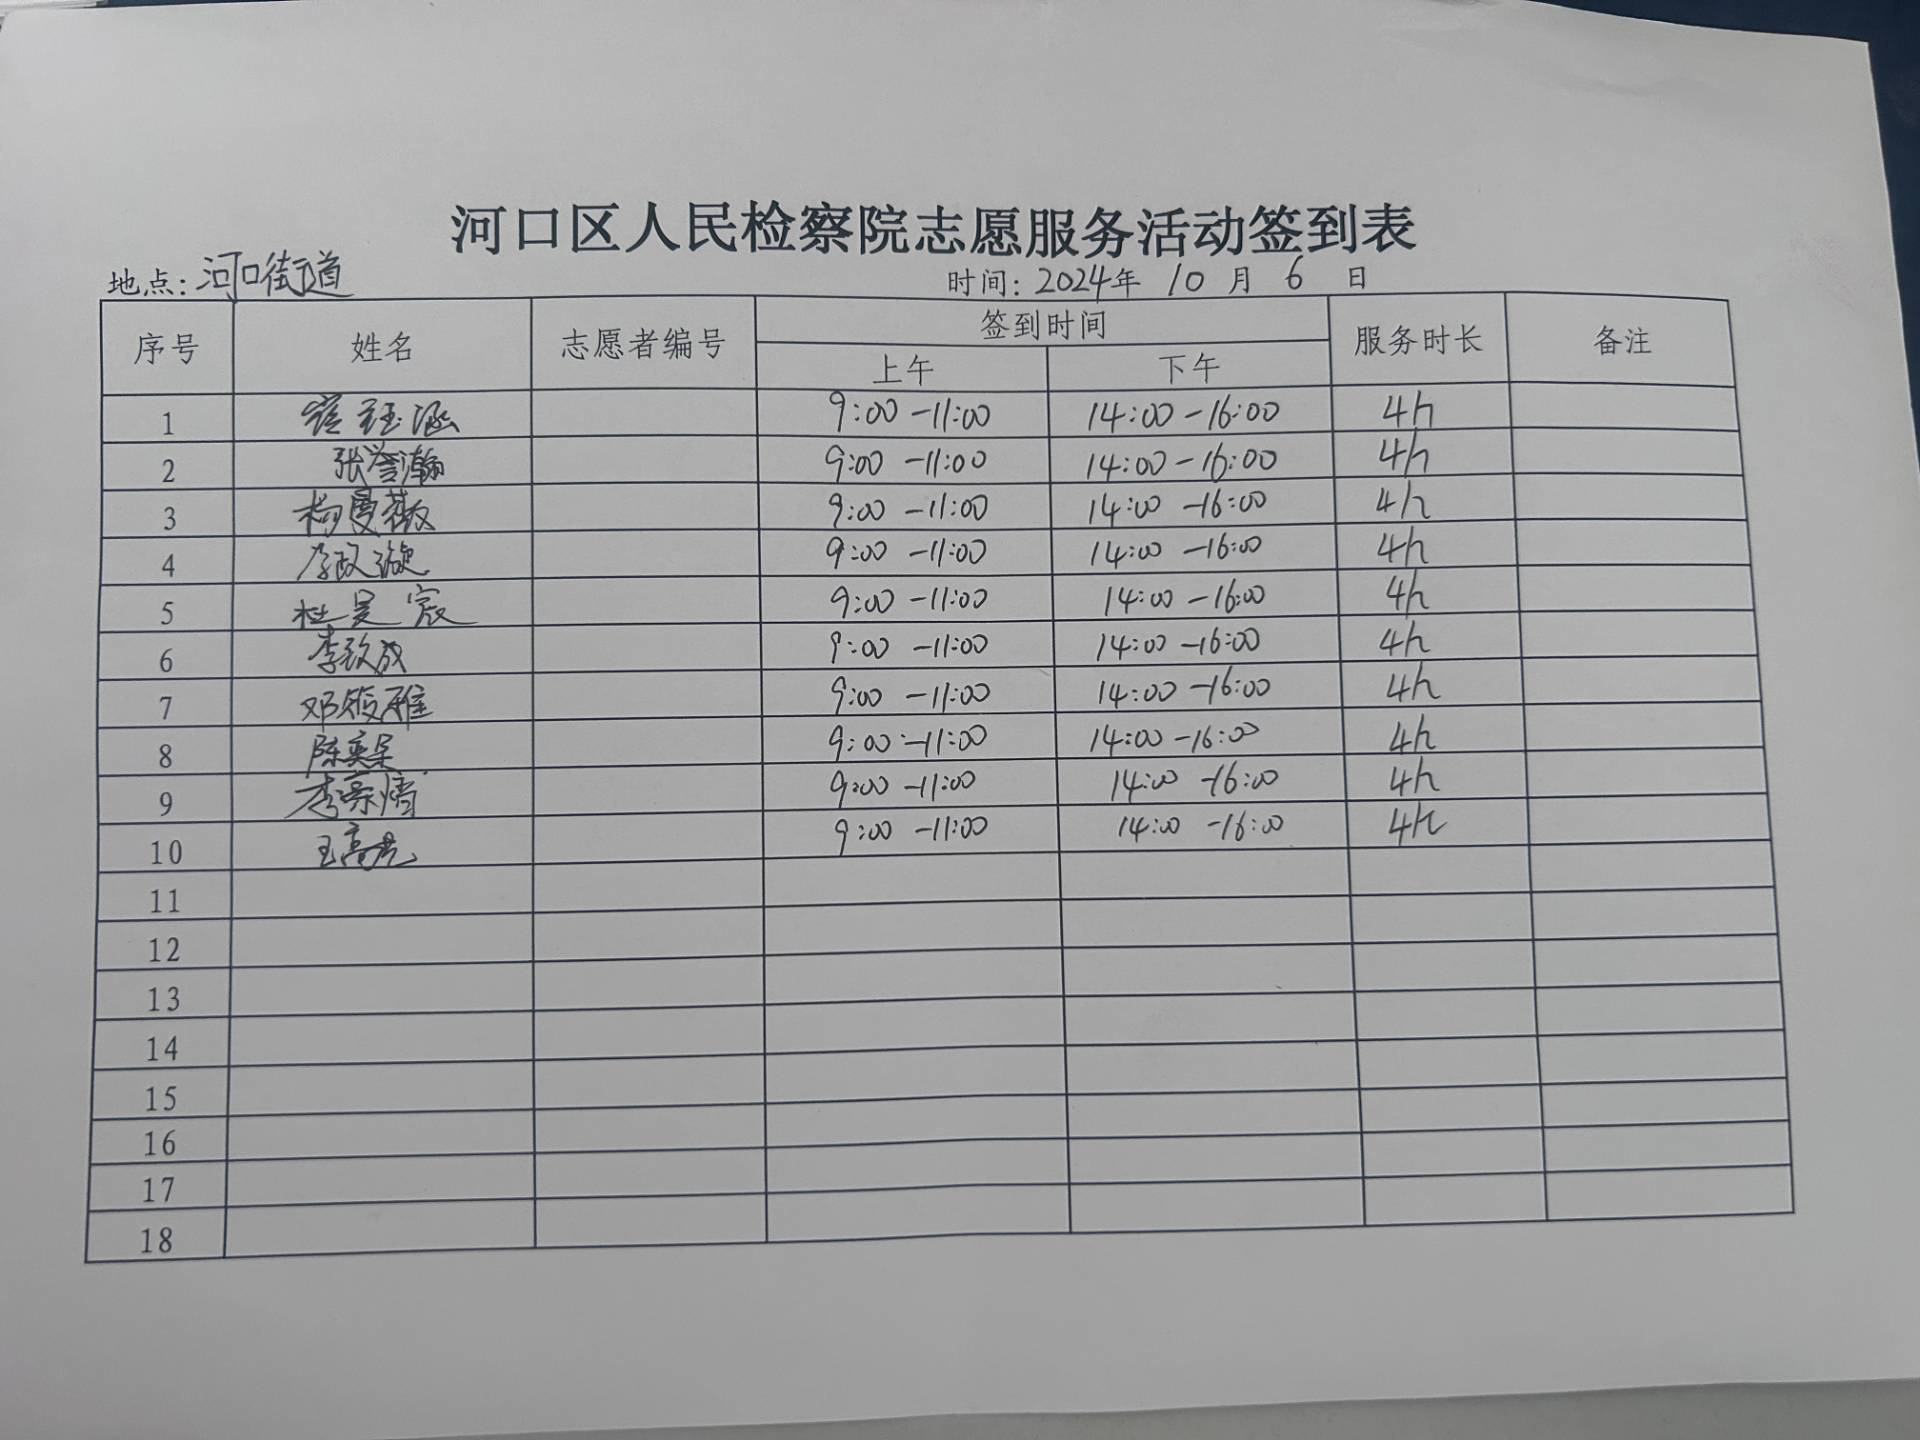 河口区人民检察院志愿服务活动签到表
地点:河口街道 时间:2024年 10 月 6 日
序号 姓名 志愿者编号 签到时间 服务时长 备注
上午 下午
1 崔珏涵 9:00-11:00 14:00-16:00 4h
2 张誉瀚 9:00-11:00 14:00-16:00 4h
3 杨曼薇 9:00-11:00 14:00-16:00 4h
4 李政 9:00-11:00 14:00-16:00 4h
5 杜昊宸 9:00-11:00 14:00-16:00 4h
6 李致成 9:00-11:00 14:00-16:00 4h
7 邓筱雅 9:00-11:00 14:00-16:00 4h
8 陈奕呆 9:00-11:00 14:00-16:00 4h
9 李 9:00-11:00 14:00-16:00 4h
10 王高 9:00-11:00 14:00-16:00 4h
11
12
13
14
15
16
17
18